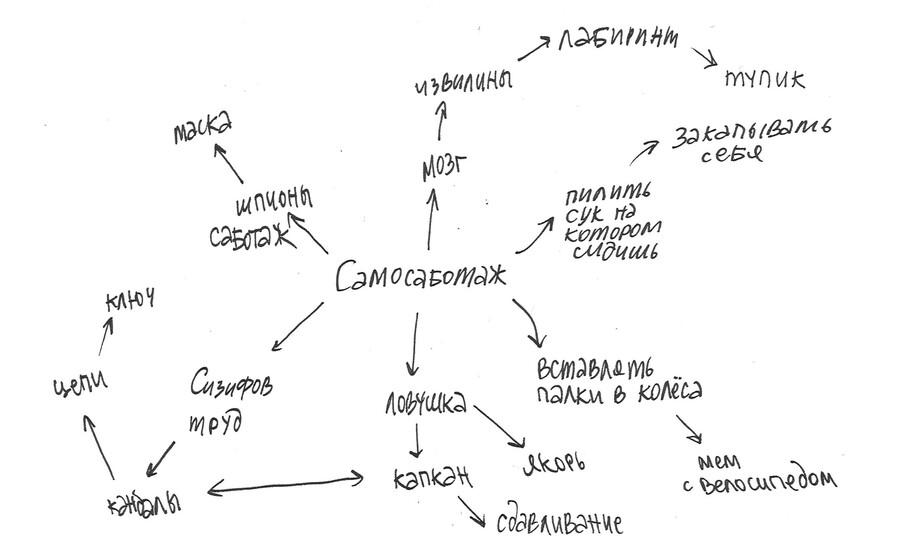 лабиринт
извилины
тупик
маска
закапывать
себя
мозг
шпионы
саботаж
пилить
сук на
котором
сидишь
Самосаботаж
ключ
цепи
Сизифов
труд
ловушка
вставлять
палки в колёса
кандалы
капкан
якорь
мем
с велосипедом
сдавливание